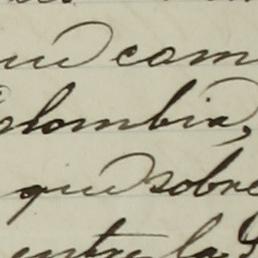 que com
Colombia,
que sobre
entre la